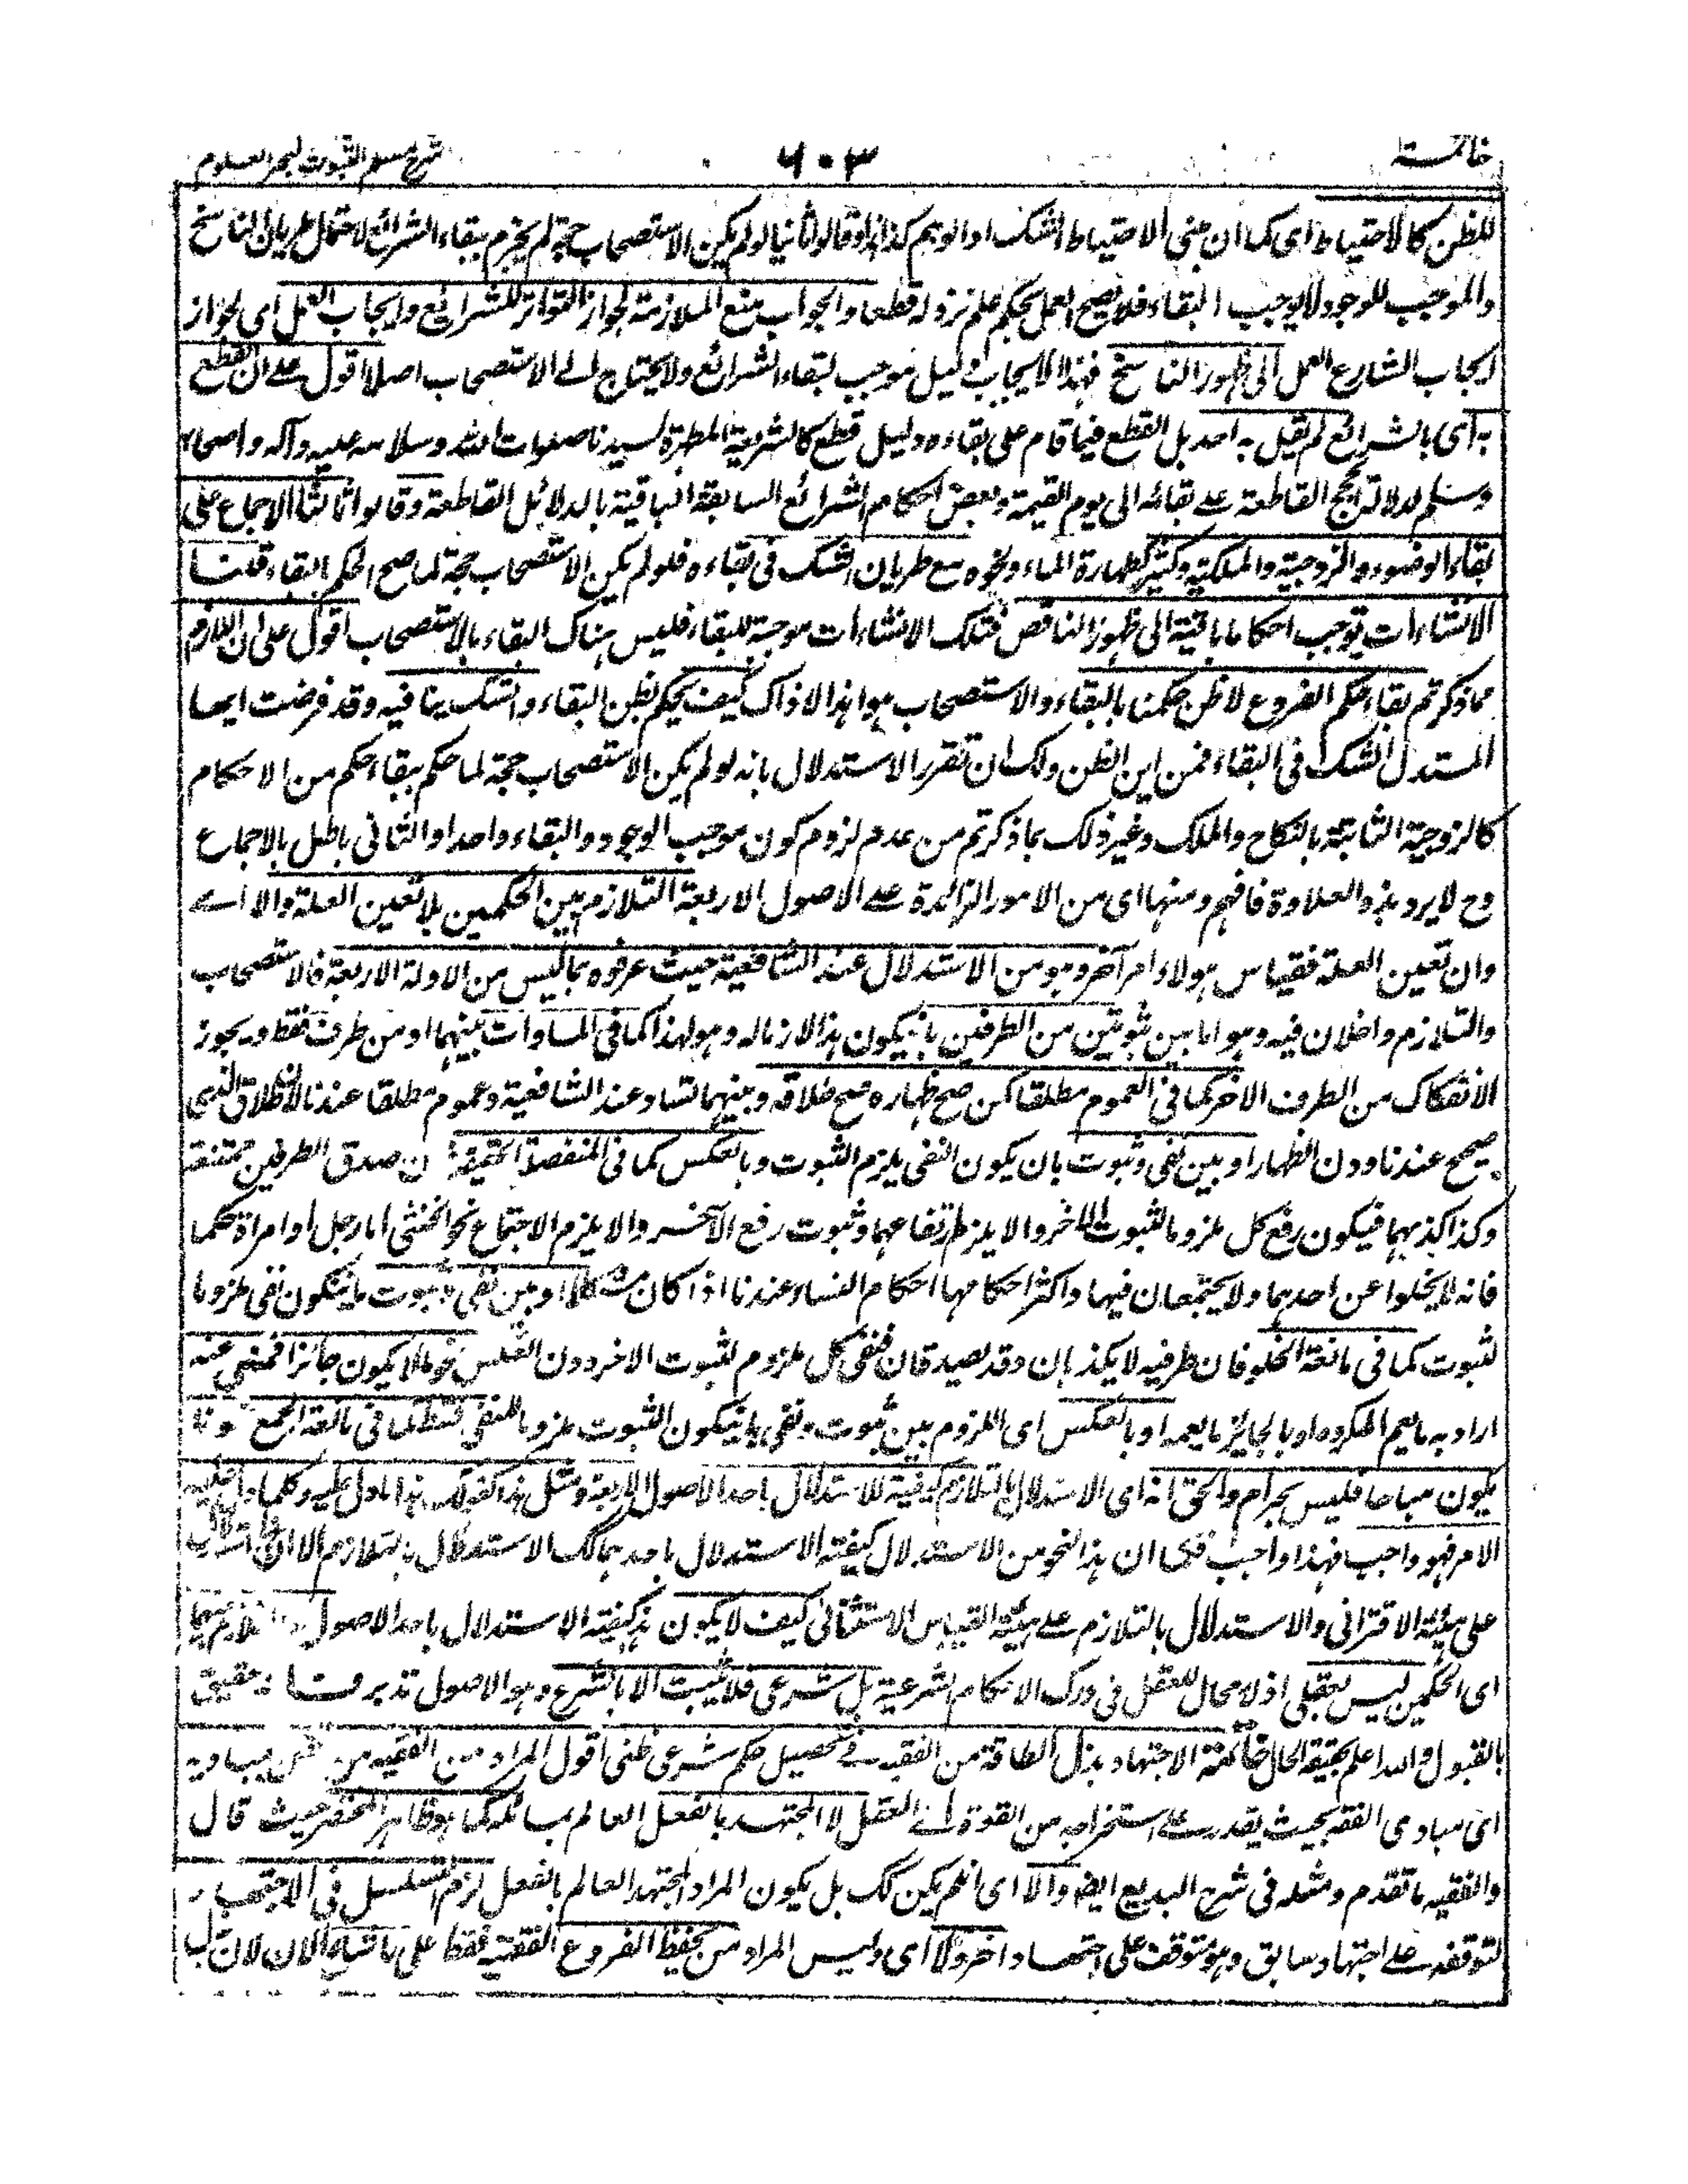 خاتمة ٦٠٣ شرح مسلم الثبوت لبحر العلوم
للظن كالاحتياط اى كما ان مبنى الاحتياط الشك او الوهم كذا هذا وقالوا ثانيا لو لم يكن الاستصحاب حجة لم يجزم ببقاء الشرائع لاحتمال طريان الناسخ
والموجب للوجود لا يوجب البقاء فلا يصح العمل بحكم علم نزوله قطعا والجواب منع الملازمة لجواز التواتر للشرائع وايجاب العمل اى لجواز
ايجاب الشارع العمل الى ظهور الناسخ فهذا الايجاب دليل موجب لبقاء الشرائع ولا يحتاج الى الاستصحاب اصلا اقول على ان القطع
به اى بالشرائع لم يقل به احد بل القطع فيما قام على بقاءه دليل قطع كالشريعة المطهرة لسيدنا صلوات الله وسلامه عليه وآله واصحابه
وسلم لدلالة الحجج القاطعة على بقائه الى يوم القيمة وبعض احكام الشرائع السابقة الباقية بالدلائل القاطعة وقالوا ثالثا الاجماع على
بقاء الوضوء والزوجية والملكية وكثير كطهارة الماء ونحوه مع طريان الشك فى بقاءه فلو لم يكن الاستصحاب حجة لما صح الحكم بالبقاء قلنا
الانشاءات توجب احكاما باقية الى ظهور الناقض فتلك الانشاءات موجبة للبقاء فليس هناك البقاء بالاستصحاب اقول على ان اللازم
مما ذكرتم بقاء حكم الفروع لا ظن حكمنا بالبقاء والاستصحاب هو هذا لا ذاك كيف يحكم بظن البقاء والشك ينافيه وقد فرضت ايها
المستدل الشك فى البقاء فمن اين الظن ولك ان تقرر الاستدلال بانه لو لم يكن الاستصحاب حجة لما حكم ببقاء حكم من الاحكام
كالزوجية الثابتة بالنكاح والملك وغير ذلك بما ذكرتم من عدم لزوم كون موجب الوجود والبقاء واحدا والثانى باطل بالاجماع
وح لا يرد هذه العلاوة فافهم ومنها اى من الامور الزائدة على الاصول الاربعة التلازم بين الحكمين بلا تعين العلة والا اے
وان تعين العلة فقياس هو لا امر آخر وهو من الاستدلال عند الشافعية حيث عرفوه بما ليس من الادلة الاربعة فالاستصحاب
والتلازم داخلان فيه وهو اما بين ثبوتين من الطرفين بان يكون هذا لازما له وهو لهذا كما فى المساوات بينهما او من طرف فقط ويجوز
الانفكاك من الطرف الاخر كما فى العموم مطلقا كمن صح ظهاره صح طلاقه وبينهما تساو عند الشافعية وعموم مطلقا عندنا لان طلاق الذمى
صحيح عندنا دون الظهار او بين نفى وثبوت بان يكون النفى يلزم الثبوت وبالعكس كما فى المنفصلة الحقيقة ن صدق الطرفين ممتنعة
وكذا كذبهما فيكون رفع كل ملزوما لثبوت الاخر والا يلزم ارتفاعهما وثبوت رفع الآخر والا يلزم الاجتماع نحو الخنثى اما رجل او امرأة حكما
فانه لا يخلوا عن احدهما ولا يجتمعان فيها واكثر احكامها احكام النساء عندنا اذا كان مشكلا او بين نفى وثبوت بان يكون نفى ملزوما
لثبوت كما فى مانعة الخلو فان طرفيه لا يكذبان وقد يصدقان فنفى كل ملزوم لثبوت الاخر دون العكس نحو ما لا يكون جائزا فمنهى عنه
اراد به ما يعم المكروه او بالجايز ما يعمه او بالعكس اى اللزوم بين ثبوت ونفى بان يكون الثبوت ملزوما للنفى فقط كما فى مانعة الجمع نحو ما
يكون مباحا فليس بحرام والحق انه اى الاستدلال بالتلازم كيفية للاستدلال باحد الاصول الاربعة ومثل هذا كقولك هذا ما دل عليه وكلما دل عليه
الامر فهو واجب فهذا واجب فكما ان هذا النحو من الاستدلال كيفية الاستدلال باحد هكذا الاستدلال بالتلازم الا ان
على هيئة الاقترانى والاستدلال بالتلازم على هيئة القياس الاستثنائى كيف لا يكون هذا كيفية الاستدلال باحد الاصول والتلازم بينهما
اى الحكمين ليس بعقلى اذ لا مجال للعقل فى درك الاحكام الشرعية بل شرعى فلا يثبت الا بالشرع وهو الاصول تدبر فهذا حقيق
بالقبول والله اعلم بحقيقة الحال خاتمة الاجتهاد بذل الطاقة من الفقيه فے تحصيل حكم شرعى ظنى اقول المراد من الفقيه من اتقن مباديه
اى مبادى الفقه بحيث يقدر على استخراجه من القوة الى الفعل لا المجتهد بالفعل العالم بمسائله كما هو ظاهر المختصر حيث قال
والفقيه ما تقدم ومثله فى شرح البديع ايضا والا اى ان لم يكن كك بل يكون المراد المجتهد العالم بالفعل لزم التسلسل فى الاجتهاد
لتوقفه على اجتهاد سابق وهو متوقف على اجتهاد اخر ولا اى وليس المراد من يحفظ الفروع الفقهية فقط على ما شاع الان لان بذل